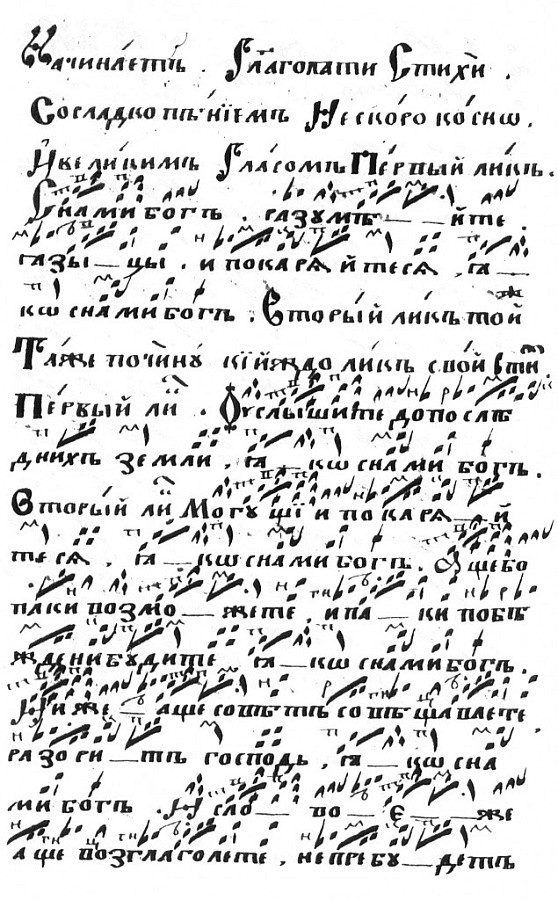 Начина́етъ . Глаголати Стихѝ .
Сосладкопѣ́нїемъ Не ско́ро ко́снѡ .
И҆вели́кимъ Гла́сомъ Пе́рвый ли́къ .
Снами бо́гъ . разꙋмѣ__йте .
ꙗ҆зы́__цы . и покаря́йтеся , ꙗ__
кѡ снами бо́гъ . Вторы́й ли́къ той
Та́яже по чи́нꙋ кі́йждо ли́къ сво́й
Пе́рвый ли . Оуслы́шите до послѣ
днихъ земли , ꙗ__кѡ снами богъ .
Вторы́й ли Могꙋщїи покаря__й
теся , ꙗ__кѡ снами богъ . Аще бо
паки возмо__жете , и па__ки побѣ
ждени бꙋдите ꙗ__кѡ снами богъ .
И иже__аще совѣтъ совѣщаваете
разори__тъ господь , ꙗ__кѡ сна
ми богъ . И сло__во__ є__же
аще возглаголете , не пребꙋ__детъ